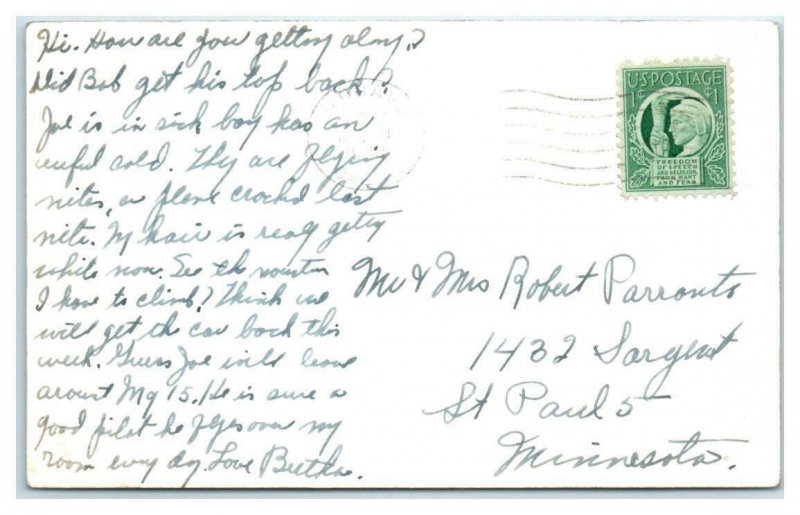 Hi. How are you getting along?
Did Bob get his top back?
Joe is in sick boy has an
awful cold. They are flying
nites, a plane crackd last
nite. My hair is really getty
white now. See the mountin
I have to climb? Think we
will get the car back this
week. Guess Joe will leave
around My 15. He is sure a
good pilot he flyes over my
room every dy. Love Bertha.
U.S. POSTAGE
1¢ ¢1
FREEDOM
OF SPEECH
AND RELIGION,
FROM WANT
AND FEAR
Mr & Mrs Robert Parronto
1432 Sargent
St Paul 5
Minnesota.